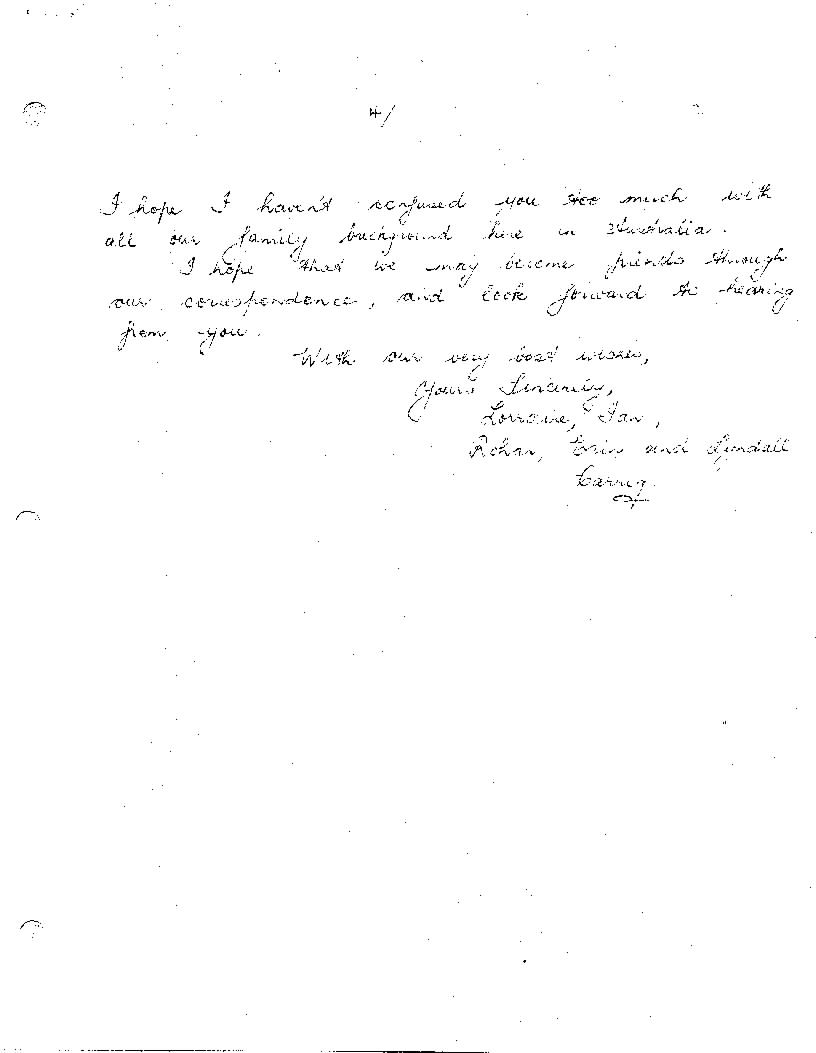 4/
I hope I haven't confused you too much with
all our family background here in Australia.
I hope that we may become friends through
our correspondence, and look forward to hearing
from you.
With our very best wishes,
Yours Sincerely,
Lorraine, Ian,
Rohan, Erin and Lyndall